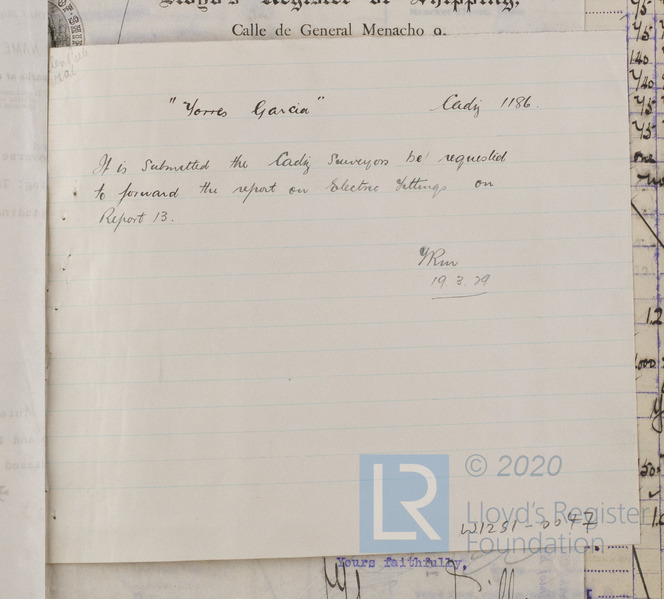 Lloyd's Register of Shipping,
Calle de General Menacho 9.
"Torres Garcia" Cadiz 1186.
It is submitted the Cadiz Surveyors be requested
to forward the report on Electric Fittings on
Report 13.
19.3.29
LR © 2020
Lloyd's Register
Foundation
W1231-0047
Yours faithfully,